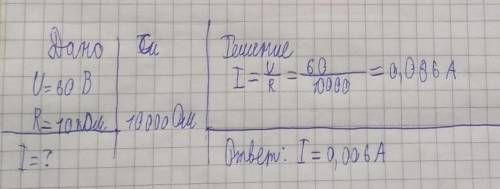 Дано Си Решение
U=60 В I = U/R = 60/10000 = 0,006 А
R=10 кОм 10000 Ом
I=? Ответ: I = 0,006 А